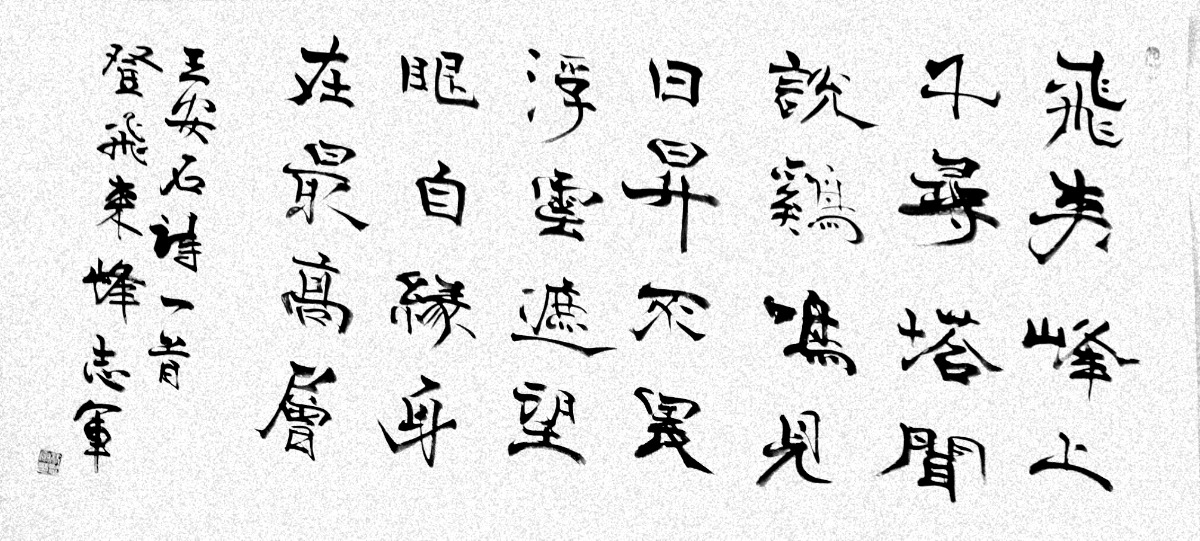 飛来峰上
千尋塔聞
說鷄鳴見
日昇不畏
浮雲遮望
眼自緣身
在最高層
王安石詩一首
登飛来峰志軍